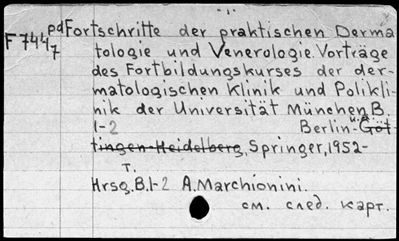 -1-
F 744 pd Fortschritte der praktischen Derma
7 tologie und Venerologie. Vorträge
des Fortbildungskurses der der-
matologischen Klinik und Polikli-
nik der Universität München B.
1-2 Berlin- u.a. Göt-
tingen-Heidelberg, Springer, 1952-
T.
Hrsg. B. 1-2 A. Marchionini.
см. след. карт.